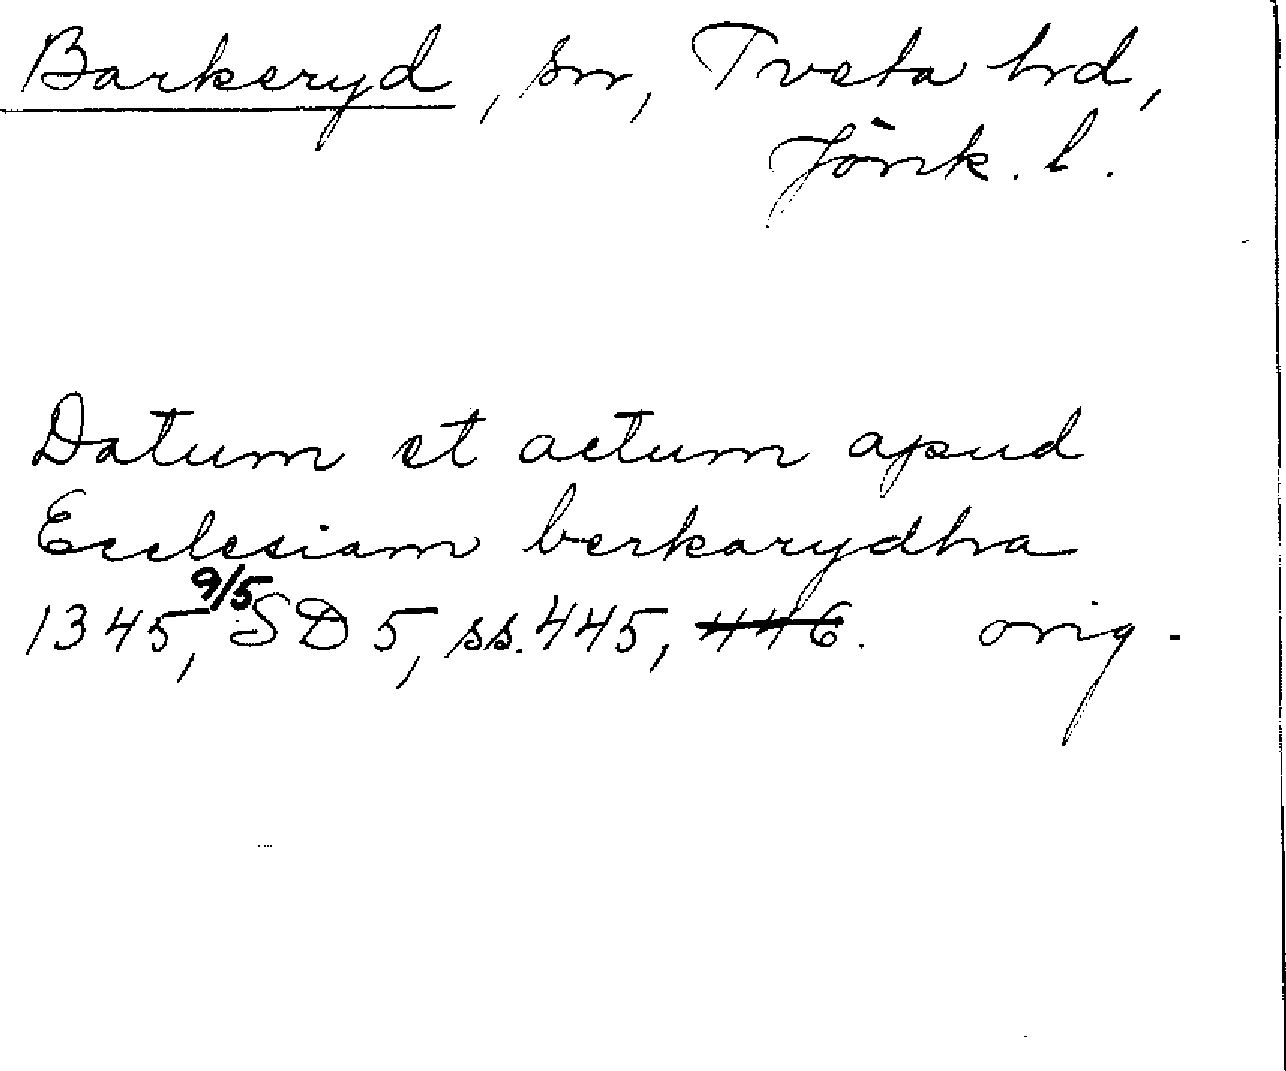 Barkeryd, sn, Tveta hrd,
Jönk. l.
Datum et actum apud
Ecclesiam berkarydha
1345, 9/5 SD 5, ss. 445, 446. orig.